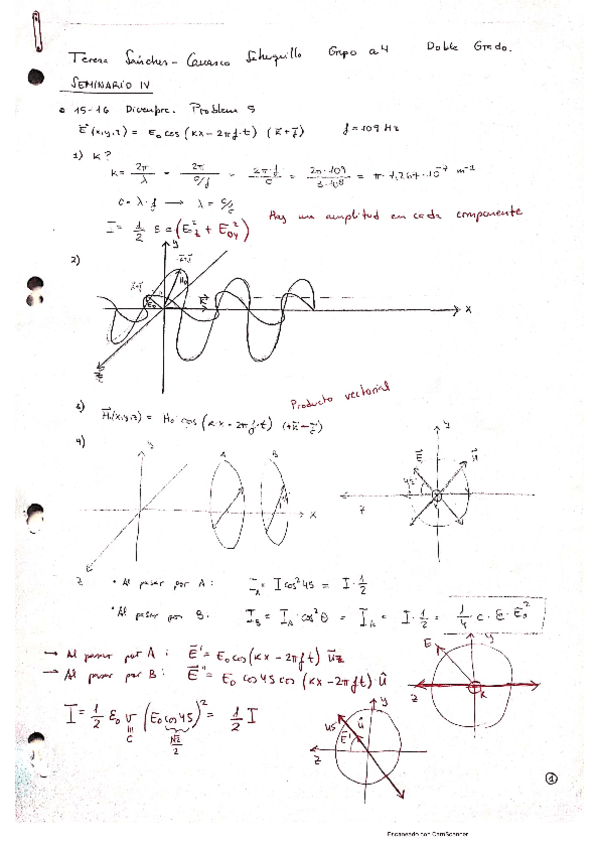 Teresa Sánchez-Carrasco Grupo a4 Doble Grado.
SEMINARIO IV
15-16 Diciembre. Problema 5
E(x,y,z) = E₀ cos (kx - 2πf·t) (k+j) f = 109 Hz
1) k?
k = 2π/λ = 2π/(c/f) = 2π·f/c = 2π·109/3·10⁸ = m⁻¹
c = λ·f → λ =
Hay una amplitud en cada componente
I = 1/2 ε c (E₀z² + E₀y²)
2)
y
H₀
E₀
K
x
z
Producto vectorial
3) H(x,y,z) = H₀ cos (kx - 2πf·t)
4)
y
A
B
x
z
y
E
H
z
• Al pasar por A: I_A = I cos² 45 = I·1/2
• Al pasar por B: I_B = I_A · cos² θ = I_A = I·1/2 = 1/4 · c · ε · E₀²
→ Al pasar por A: E' = E₀ cos (kx - 2πft) u_z
→ Al pasar por B: E'' = E₀ cos 45 cos (kx - 2πft) · û
E
y
z
K
I = 1/2 ε₀ v (E₀ cos 45)² = 1/2 I
c
√2/2
y
45
û
E'
z
1
Escaneado con CamScanner